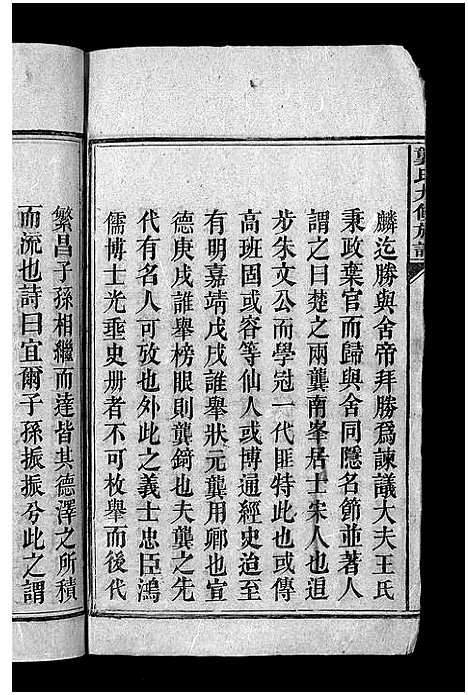 龔氏九修族譜
麟迄勝與舍帝拜勝爲諫議大夫王氏
秉政棄官而歸與舍同隱名節並著人
謂之曰楚之兩龔南峯居士宋人也追
步朱文公而學冠一代匪特此也或傳
高班固或容等仙人或博通經史迨至
有明嘉靖戊戌誰舉狀元龔用卿也宜
德庚戌誰舉榜眼則龔錡也夫龔之先
代有名人可攷也外此之義士忠臣鴻
儒博士光垂史册者不可枚舉而後代
繁昌子孫相繼而達皆其德澤之所積
而流也詩曰宜爾子孫振振兮此之謂